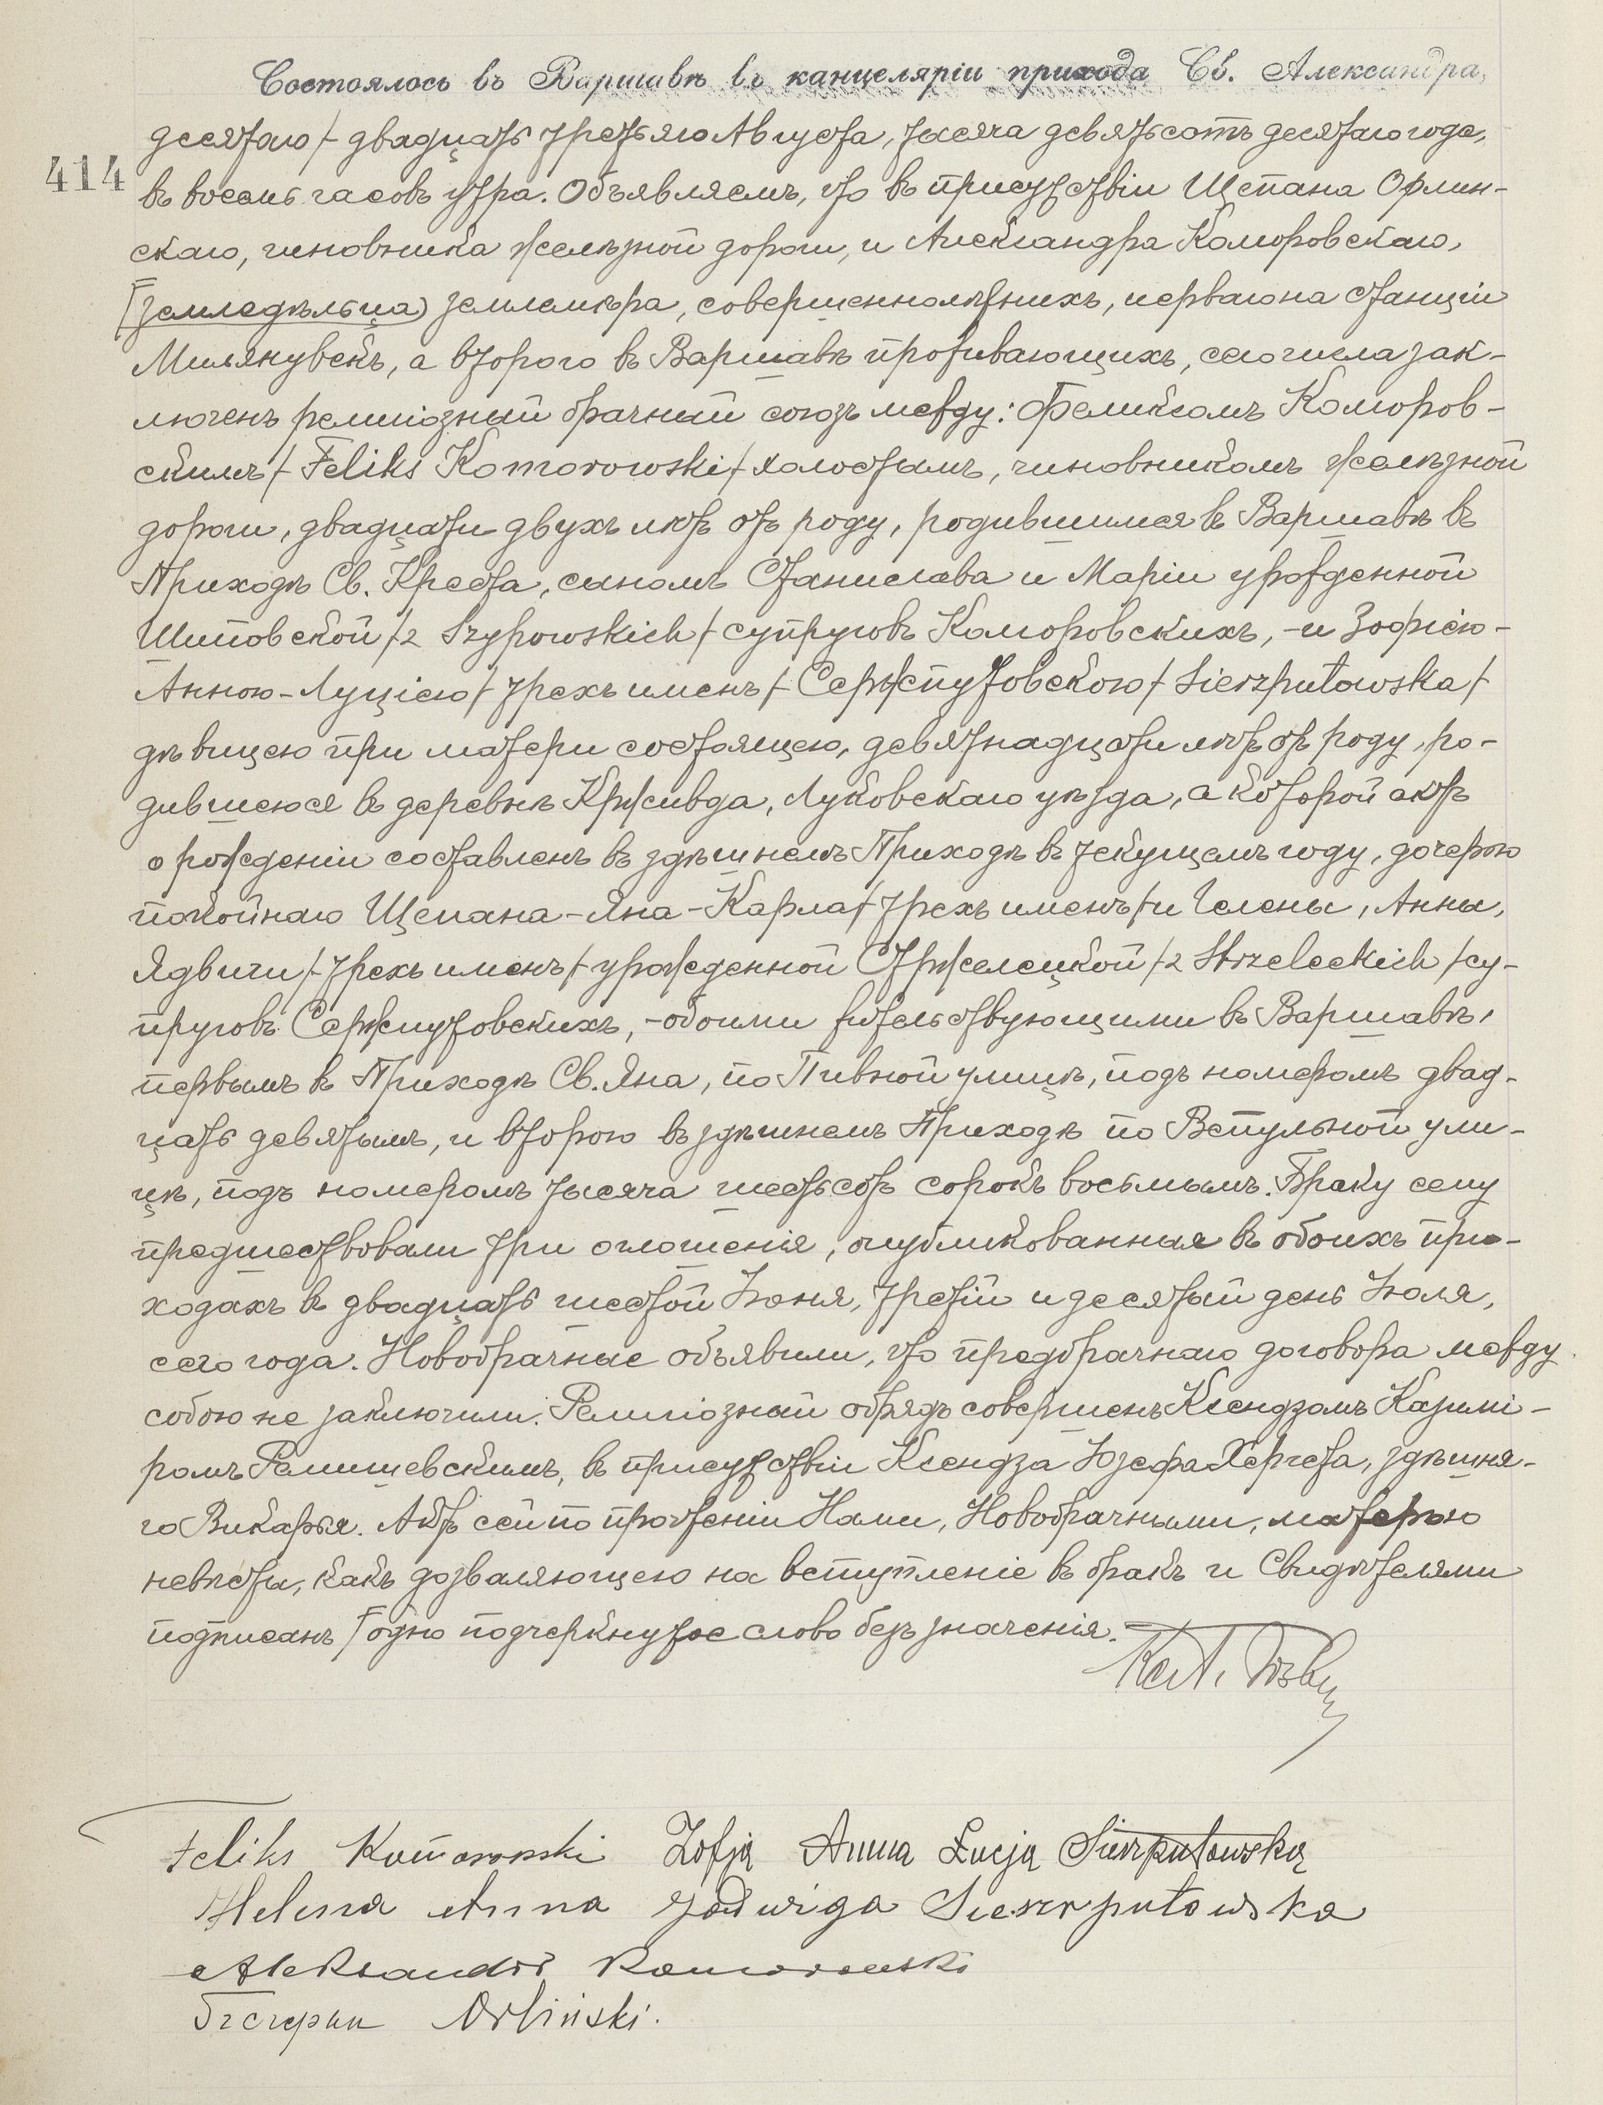 Состоялось въ Варшавѣ въ канцеляріи прихода Св. Александра,
десятаго /двадцать третьяго Августа, тысяча девятьсотъ десятаго года,
414
въ восемь часовъ утра. Объявляемъ, что въ присутствіи Щепана Орлин-
скаго, чиновника желѣзной дороги, и Александра Коморовскаго,
(земледѣльца) землемѣра, совершеннолѣтнихъ, перваго на станціи
Милянувекъ, а второго въ Варшавѣ проживающихъ, сего числа зак-
люченъ религіозный брачный союзъ между: Феликсомъ Коморов-
скимъ /Feliks Komorowski/ холостымъ, чиновникомъ желѣзной
дороги, двадцати двухъ лѣтъ отъ роду, родившимся въ Варшавѣ въ
Приходѣ Св. Креста, сыномъ Станислава и Маріи урожденной
Шиповской /z Szypowskich/ супруговъ Коморовскихъ, - и Зофіею-
Анною-Луціею /трехъ именъ/ Сержпутовскою /Sierzputowska/
дѣвицею при матери состоящею, девятнадцати лѣтъ отъ роду, ро-
дившеюся въ деревнѣ Крживда, Луковскаго уѣзда, а которой актъ
о рожденіи составленъ въ здѣшнемъ Приходѣ въ текущемъ году, дочерью
покойнаго Щепана-Яна-Карла /трехъ именъ/ и Гелены, Анны,
Ядвиги /трехъ именъ/ урожденной Стржелецкой /z Strzeleckich/ су-
пруговъ Сержпутовскихъ, - обоими жительствующими въ Варшавѣ,
первымъ въ Приходѣ Св. Яна, по Пивной улицѣ, подъ номеромъ двад-
цать девятымъ, и второю въ здѣшнемъ Приходѣ по Вспульной ули-
цѣ, подъ номеромъ тысяча шестьсотъ сорокъ восьмымъ. Браку сему
предшествовали три оглошенія, опубликованныя въ обоихъ при-
ходахъ въ двадцать шестой Іюня, третій и десятый день Іюля,
сего года. Новобрачные объявили, что предбрачнаго договора между
собою не заключили. Религіозный обрядъ совершенъ Ксендзомъ Казимі-
ромъ Ремишевскимъ, въ присутствіи Ксендза Юзефа Хергета, здѣшня-
го Викарья. Актъ сей по прочтеніи Нами, Новобрачными, матерью
невѣсты, какъ дозваляющею на вступленіе въ бракъ и Свидѣтелями
подписанъ / одно подчеркнутое слово безъ значенія.
Feliks Komorowski Zofja Anna Łucja Sierzputowska
Helena Anna Jadwiga Sierzputowska
Aleksander Komorowski
Szczepan Orliński.